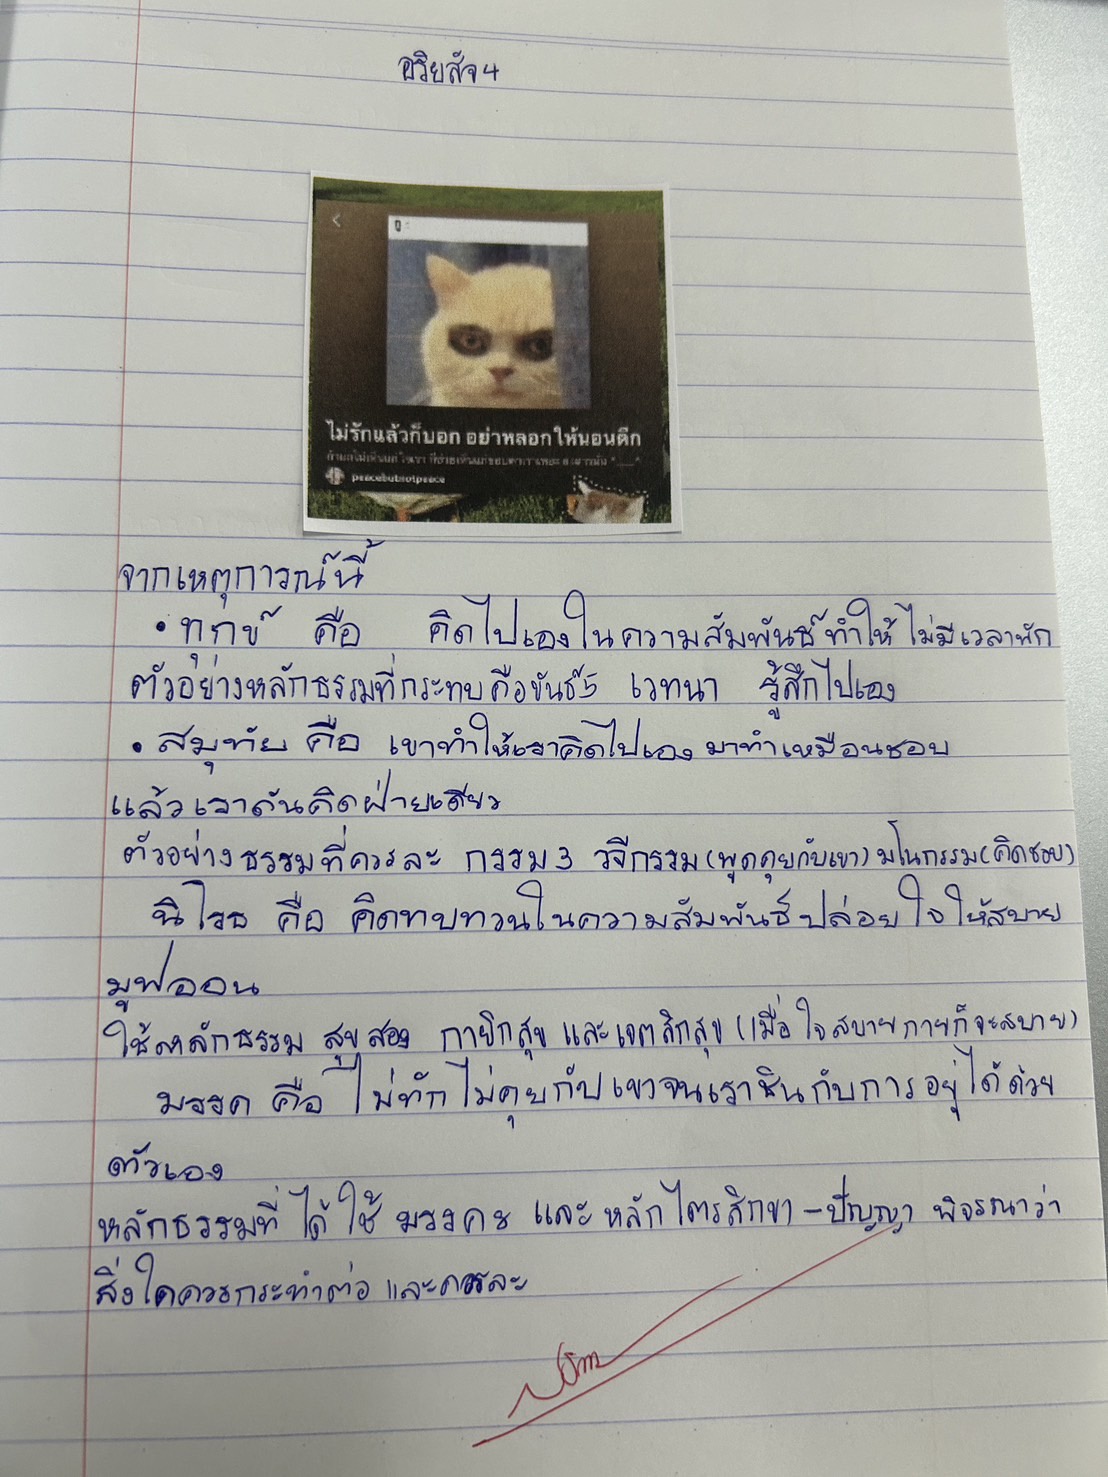 อริยสัจ 4
ไม่รักแล้วก็บอก อย่าหลอกให้นอนดึก
peacebutnotpeace
จากเหตุการณ์นี้
• ทุกข์ คือ คิดไปเองในความสัมพันธ์ทำให้ไม่มีเวลาพัก
ตัวอย่างหลักธรรมที่กระทบคือขันธ์5 เวทนา รู้สึกไปเอง
• สมุทัย คือ เขาทำให้เราคิดไปเอง มาทำเหมือนชอบ
แล้วเราดันคิดฝ่ายเดียว
ตัวอย่างธรรมที่ควรละ กรรม3 วจีกรรม(พูดคุยกับเขา) มโนกรรม(คิดชอบ)
นิโรธ คือ คิดทบทวนในความสัมพันธ์ ปล่อยใจให้สบาย
มูฟออน
ใช้หลักธรรม สุขสอง กายิกสุข และเจตสิกสุข (เมื่อใจสบายกายก็จะสบาย)
มรรค คือ ไม่ทักไม่คุยกับเขาจนเราชินกับการอยู่ได้ด้วย
ตัวเอง
หลักธรรมที่ได้ใช้ มรรค8 และหลักไตรสิกขา -ปัญญา พิจรณาว่า
สิ่งใดควรกระทำต่อ และควรละ